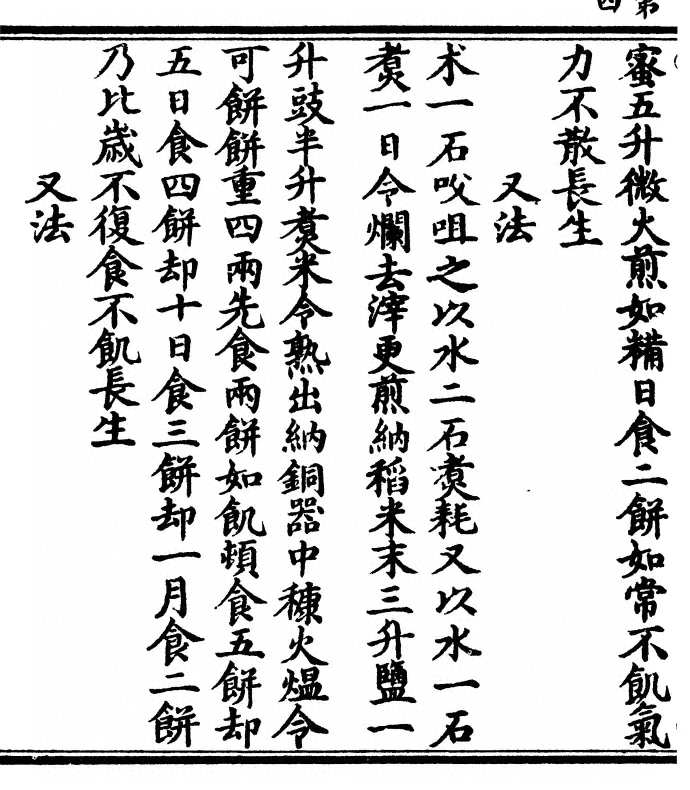 第四
蜜五升微火煎如糒日食二餅如常不飢氣
力不散長生
又法
术一石㕮咀之以水二石煑耗又以水一石
煑一日令爛去滓更煎納稻米末三升鹽一
升豉半升煑米令熟出納銅器中穅火熅令
可餅餅重四兩先食兩餅如飢頓食五餅却
五日食四餅却十日食三餅却一月食二餅
乃比歲不復食不飢長生
又法